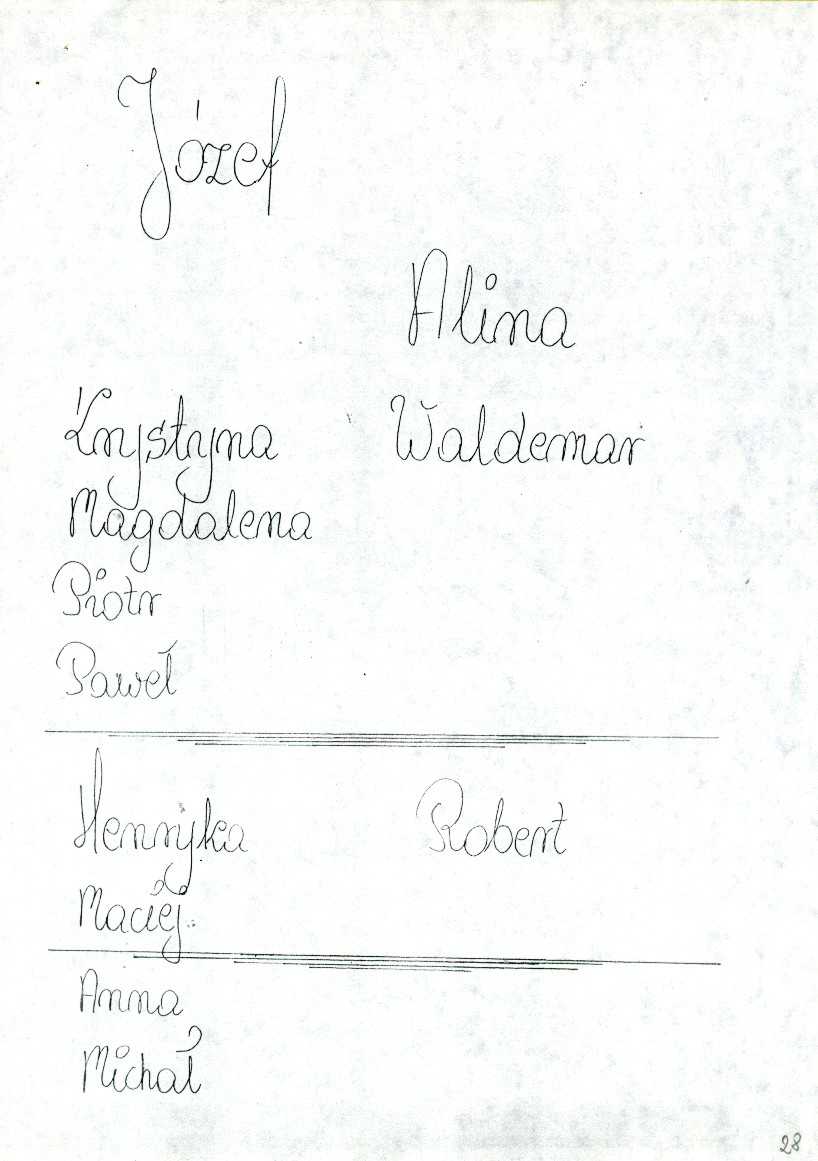 Józef
Alina
Krystyna Waldemar
Magdalena
Piotr
Paweł
Henryka Robert
Maciej
Anna
Michał
28